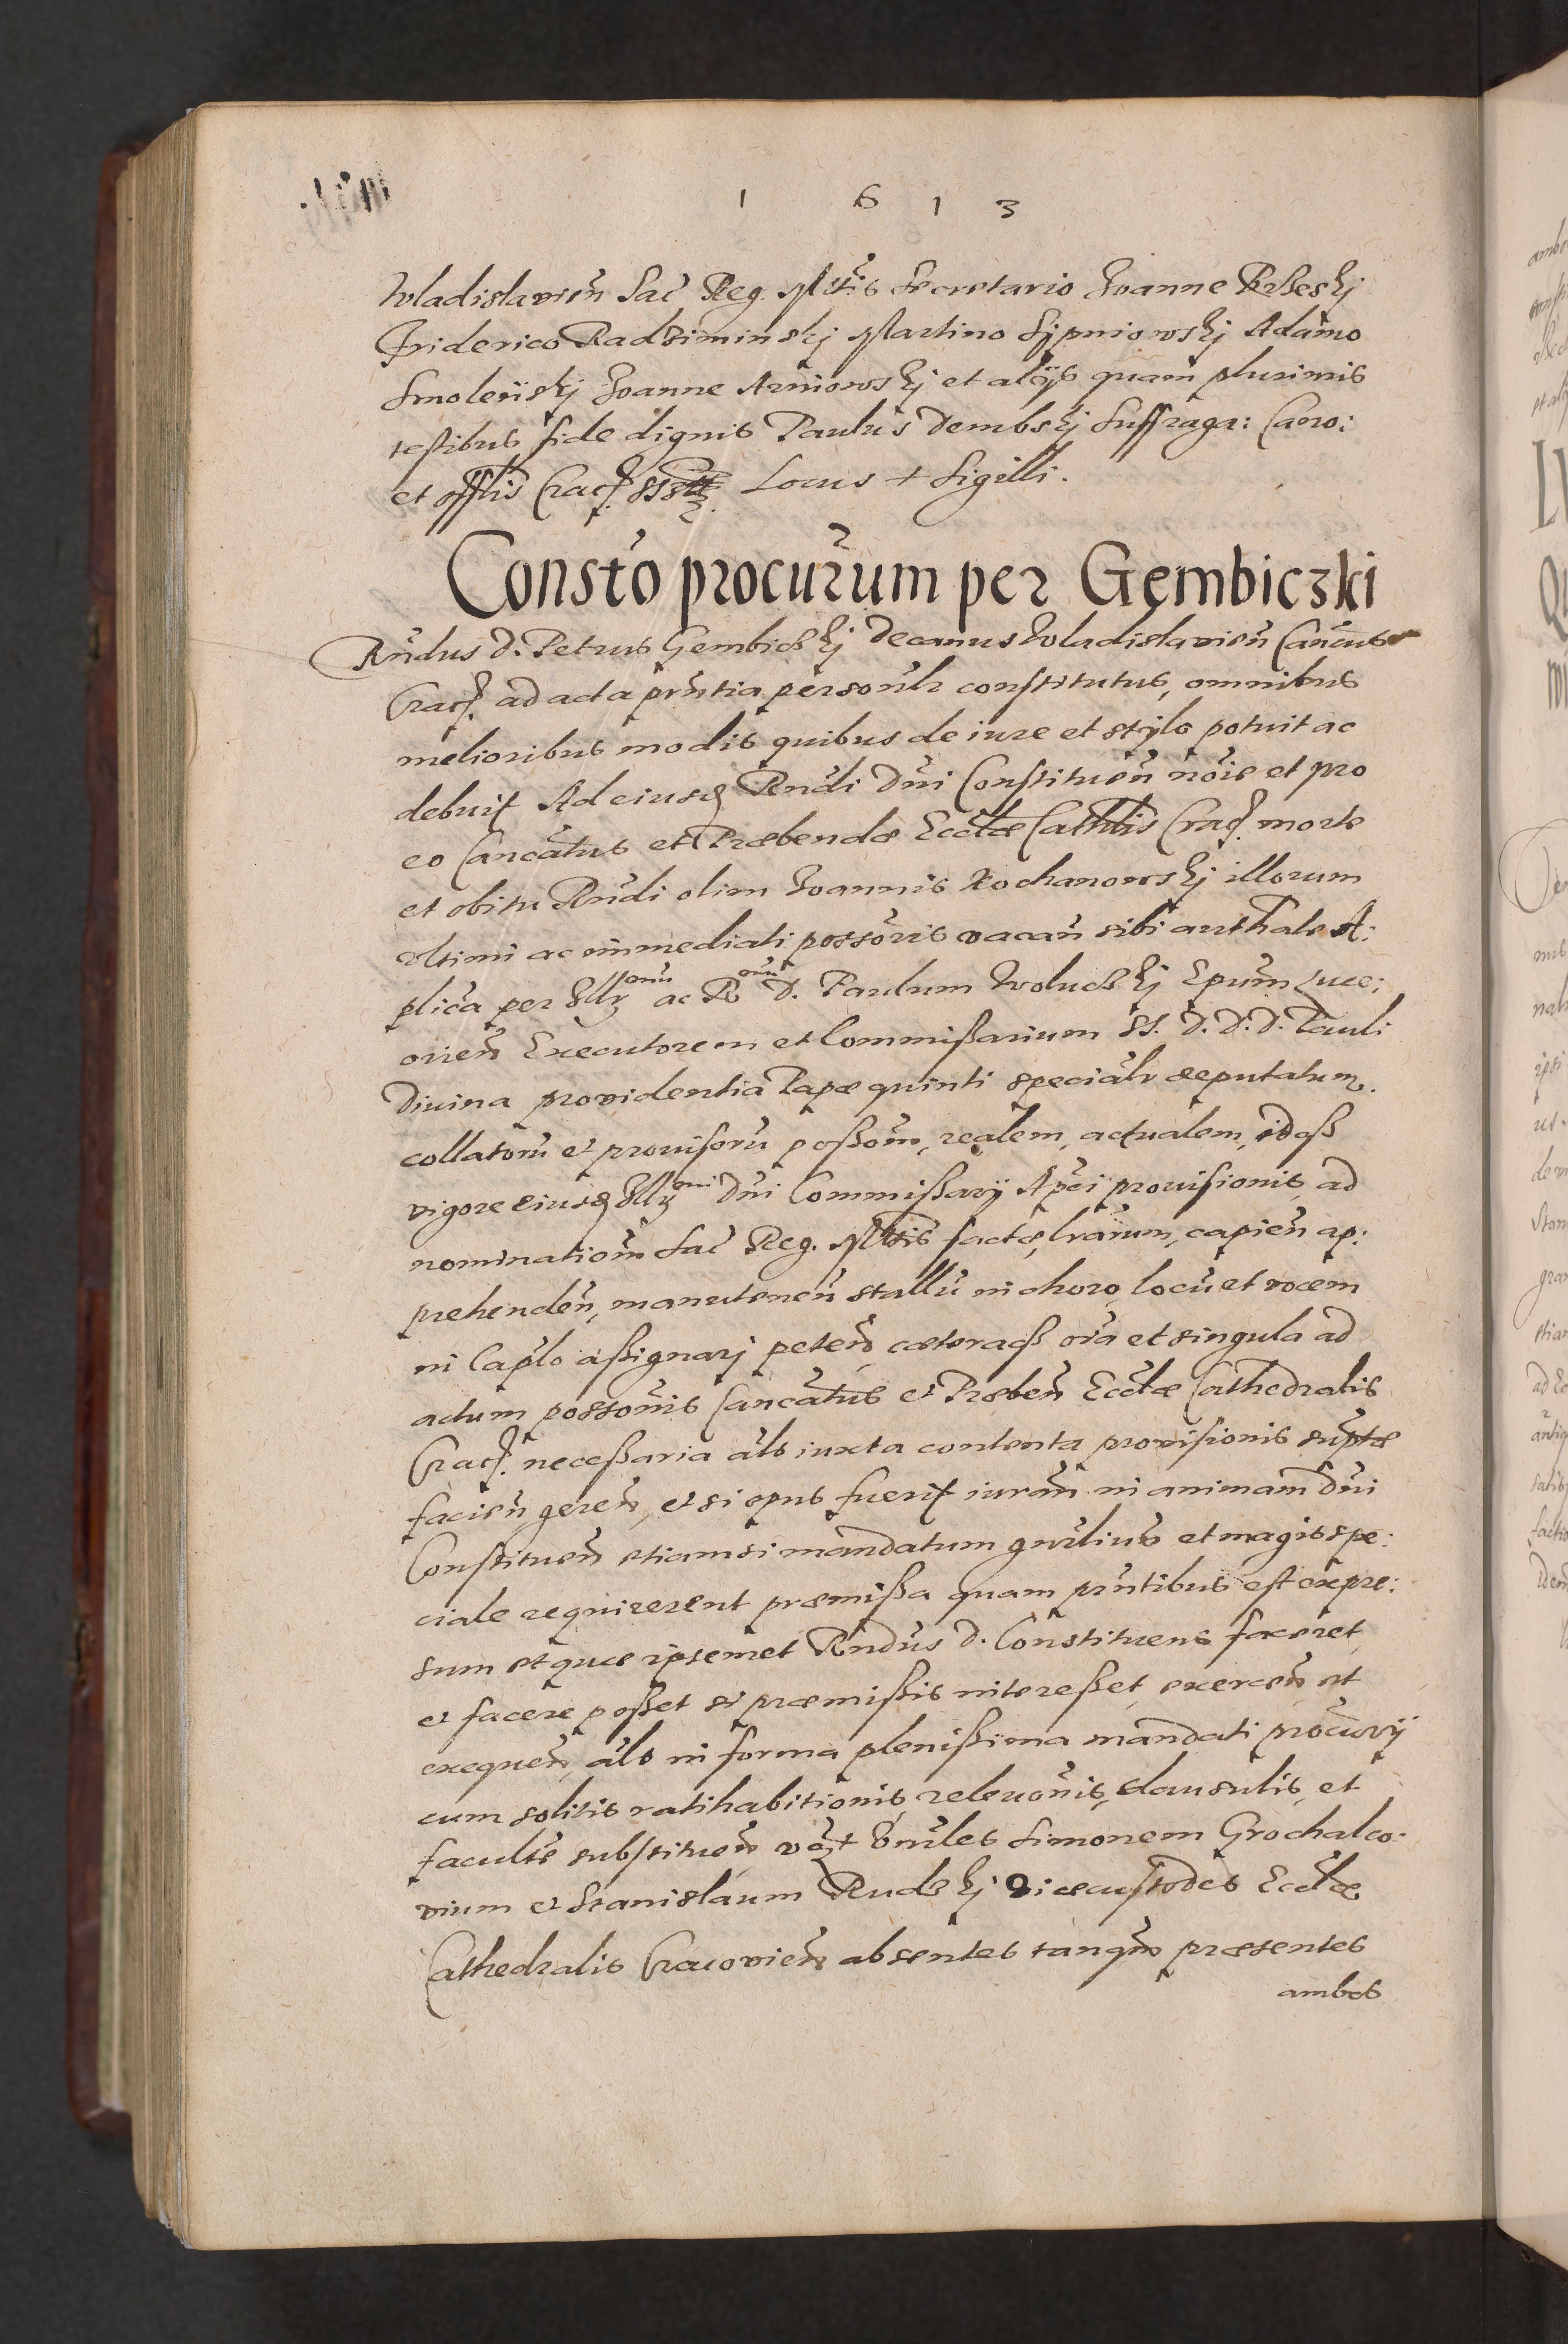 1 6 1 3
Wladislavien̄ Sac̄ Reg. Mt̄tis Secretario Joanne Rzeskj
Friderico Radziminskj Martino Lipniowskj Adamo
Smolenskj Joanne Arniowskj et alijs quam plurimis
testibus fide dignis Paulus Dembskj Suffraga: Cano:
et offlis Crac. Locus + Sigilli.
Consto procurum per Gembiczki
Rndus D. Petrus Gembickj Decanus Wladislavien̄ Cancus
Crac. ad acta prntia personlr constitutus, omnibus
melioribus modis quibus de iure et stylo potuit ac
debuit Ad eiusd Rndi Dni Constituen̄ noie et pro
eo Cancatus et Præbendæ Eccliæ Cathlis Crac. morte
et obitu Rndi olim Joannis Kochanowskj illorum
vltimi ac immediati possoris vacan̄ sibi authate A:
plica per Illrmum ac Rmum D. Paulum Woluckj Epum Luce:
orien̄ Executorem et Commißarium SS. D. D. D. Pauli
Diuina providentia Papæ quinti specialr deputatum.
collatoru et prouisoru poßom, realem, actualem, idq3
vigore eiusd Illrmi Dni Commißarij Aplci prouisionis, ad
nominationem Sac̄ Reg. Mttis factæ, lrarum, capien̄ ap:
prehenden̄, manutenen̄ stallū in choro, locū et vocem
in Caplo aßignarj peten̄ cæteraq3 oīa et singula ad
actum possonis Cancatus et Præben̄ Eccliæ Cathedralis
Crac. neceßaria als iuxta contenta provisionis suptæ
facien̄ geren̄, et si opus fuerit iuran̄ in animam Dni
Constituen̄ etiamsi mandatum gnrlius et magis spe:
ciale requirerent præmißa quam prntibus est expre:
sum et quæ ipsemet Rndus D. Constituens faceret
et facere poßet si præmißis intereßet exercen̄ et
exequen̄, als in forma plenißima mandati procurij
cum solitis ratihabitionis, releuonis, clausulis, et
facultè substituen̄ vzt Vnrles Simonem Grochalco:
vium et Stanislaum Rudskj Vicecustodes Eccliæ
Cathedralis Cracovien̄ absentes tanqm præsentes
ambos